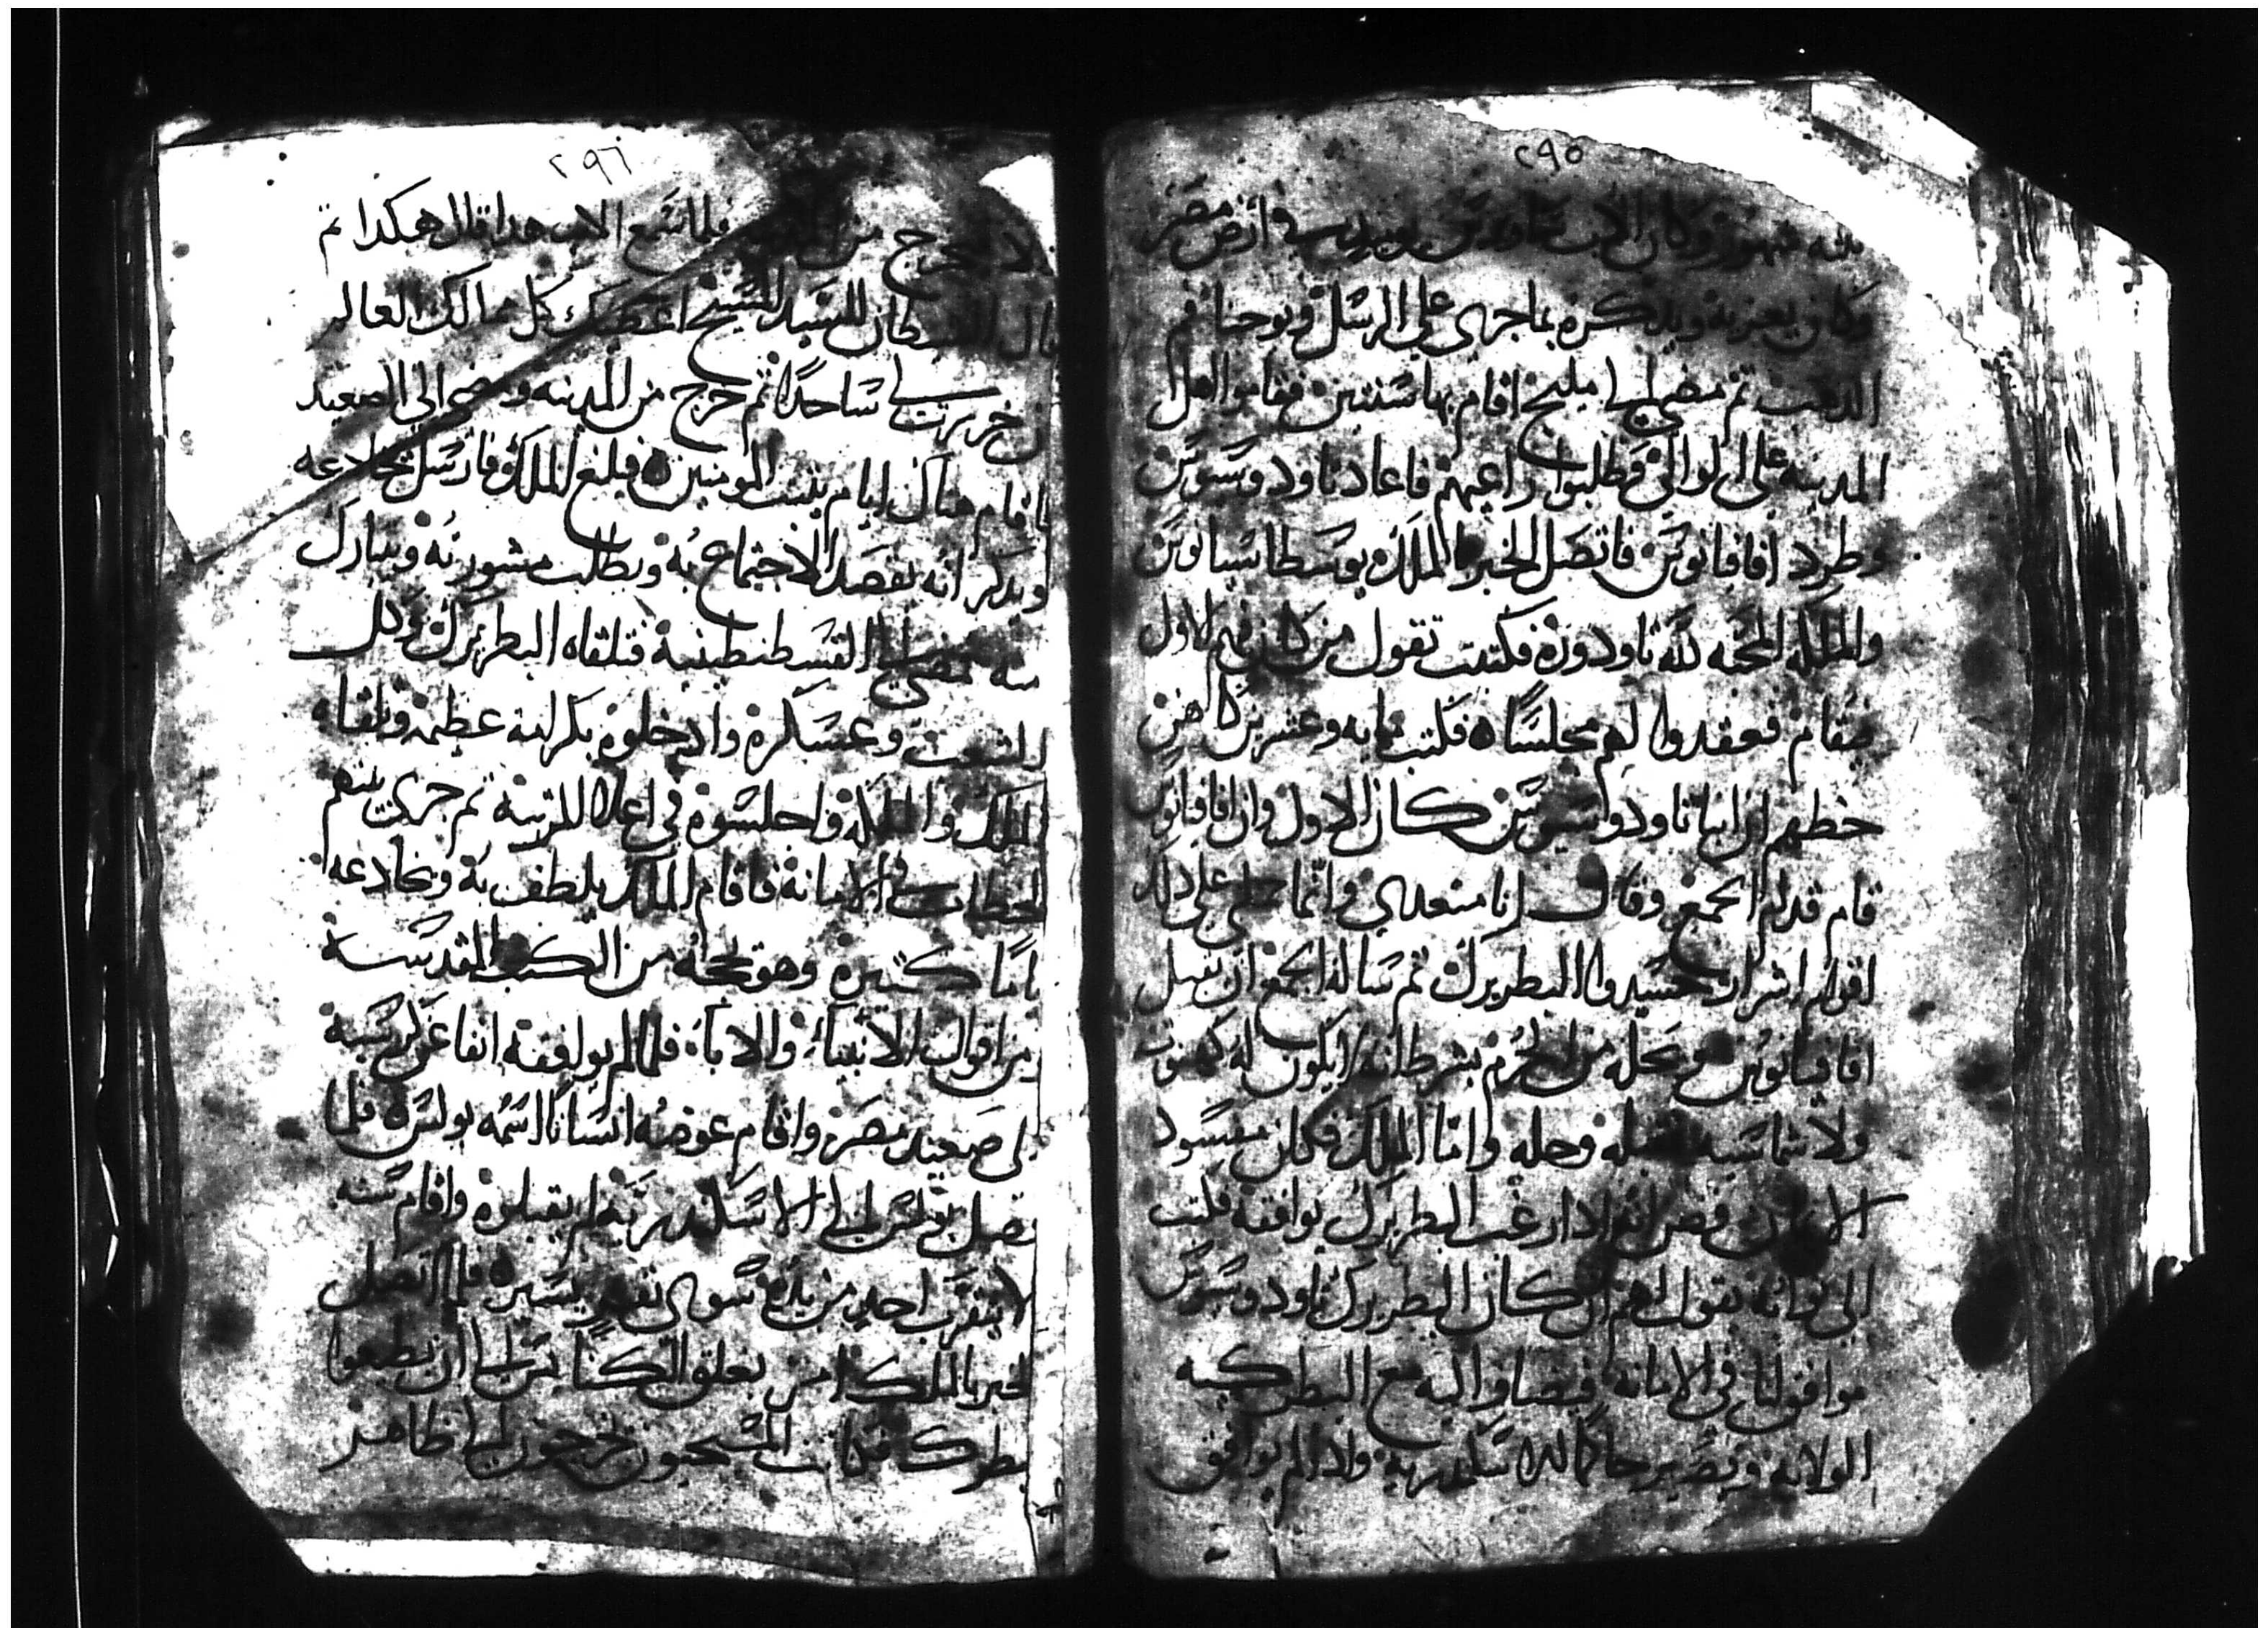 ٢٩٥
ستة شهور وكان الاب ساويرس في ارض مصر
وكان يعزيه ويذكره بما جرى على الرسل ويوحنا فم
الدهب ثم مضى الى مليج اقام بها سنتين فقاموا اهل
المدينه على الوالي وطلبوا راعيهم فاعاد تاودوسيوس
وطرد اقاقيانوس فاتصل الخبر الملك يوسطاسيانوس
والملكه المحبه لله تاودوره فكتبت تقول من كان فيهم الاول
يقام فعقدوا لهم مجلسا فكتب مايه وعشرين كاهن
خطهم ان انبا تاودوسيوس كان الاول وان اقاقيانوس
قام قدام الجمع وقال انا متعدي وانما حملني على دلك
اقوام اشرار حسدوا البطريرك ثم ساله الجمع ان يقبل
اقاقيانوس ويحله من الحرم بشرط انه لا يكون له كهنوت
ولا شماسيه فقبله وحله واما الملك فكان مفسود
الامانه فضن انه ادا رغب البطريرك يوافقه فكتب
الى نوابه يقول لهم ان كان البطريرك تاودوسيوس
موافق لنا في الامانه فيضاف اليه مع البطركيه
الولايه ويصير حاكما لاسكندريه وادا لم يوافق
٢٩٦
يخرج من المدينه فلما سمع الاب هدا قال هكدا ثم
قال الشيطان للسيد المسيح اعطيك كل ممالك العالم
ان خررت لي ساجدا ثم خرج من المدينه ومضى الى الصعيد
فاقام هناك ايام يثبت المومنين فبلغ الملك فارسل يخادعه
ويدكر انه يقصد الاجتماع به ويطلب مشورته ويتبارك
منه فمضى الى القسطنطينية فتلقاه البطريرك وكل
الشعب وعسكره وادخلوه بكرامة عظيمه وتلقاه
الملك والملكه واجلسوه في اعلا المرتبه ثم جرى بينهم
الخطاب في الامانة فاقام الملك يلطف به ويخادعه
اياما كتيره وهو يحجه من الكتب المقدسة
ومن اقوال الانبياء والاباء فلما لم يوافقه انفاه عن كرسيه
الى صعيد مصر واقام عوضه انسانا اسمه بولس فلما
وصل بولس الى الاسكندريه لم يقبلوه واقام سنه
لا يتقرب احد من يده سوى نفر يسيره فلما اتصل
الخبر بالملك امر بغلق الكنايس الى ان يطيعوا
بطرك فكانت المسيحيون يخرجون الى ظاهر